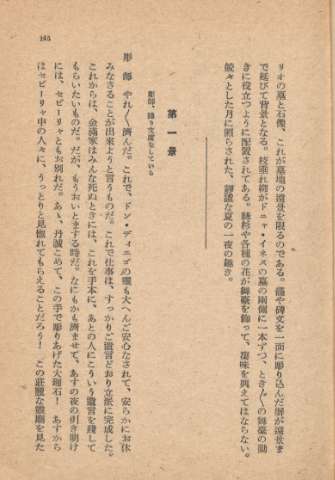 165
リオの墓と石像、これが墓場の遠景を限るのである。龕や碑文を一面に彫り込んだ塀が遠景ま
で延びて背景となる。枝垂れ柳がドニャ・イネスの墓の兩側に一本ずつ、とき〴〵の舞臺の動
きに役立つように配置されてある。絲杉や各種の花が舞臺を飾って、凄味を與えてはならない。
皎々とした月に照らされた、靜謐な夏の一夜の趣き。
第一景
彫師、歸り支度をしている
彫師 やれ〳〵濟んだ。これで、ドン・ディエゴの靈も大へんご安心なされて、安らかにお休
みなさることが出來ようと言うものだ。これで仕事は、すっかりご遺言どおり立派に完成した。
これからは、金滿家はみんな死ぬときには、これを手本に、あとの人にこういう遺言を殘して
もらいたいものだ。だが、もうおいとまする時だ。なにもかも濟ませて、あすの夜の引き明け
には、セビーリャともお別れだ。あゝ、丹誠こめて、この手で彫りあげた大理石！ あすから
はセビーリャ中の人々に、うっとりと見惚れてもらえることだろう！ この莊嚴な靈廟を見た